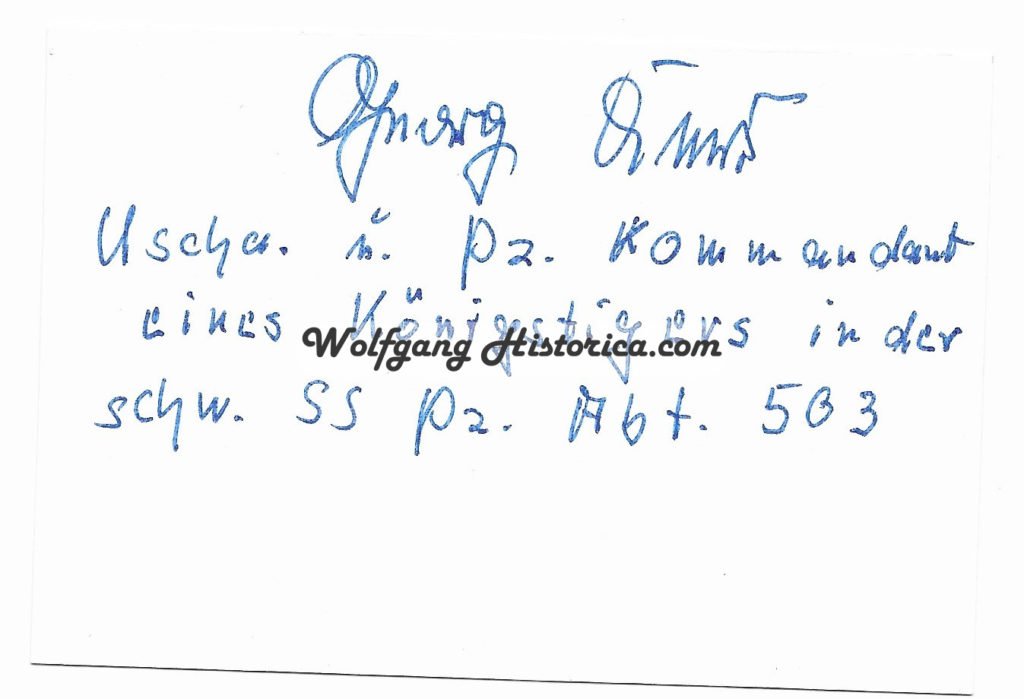 Georg
Uscha. u. Pz. Kommandant
eines Königstigers in der
Wolfgang Historica.com
schw. SS Pz. Abt. 503